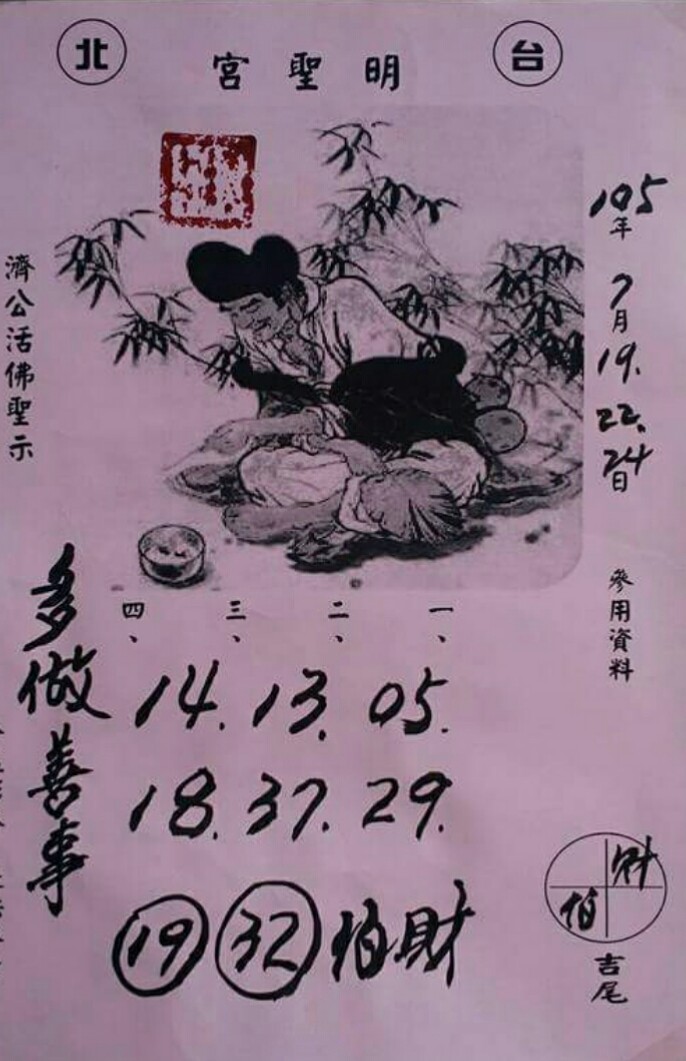 台北
明聖宮
105年7月19.22.24日
參用資料
濟公活佛聖示
一、二、三、四、
05. 13. 14.
29. 37. 18.
財伯 32 19
多做善事
財
伯
吉尾